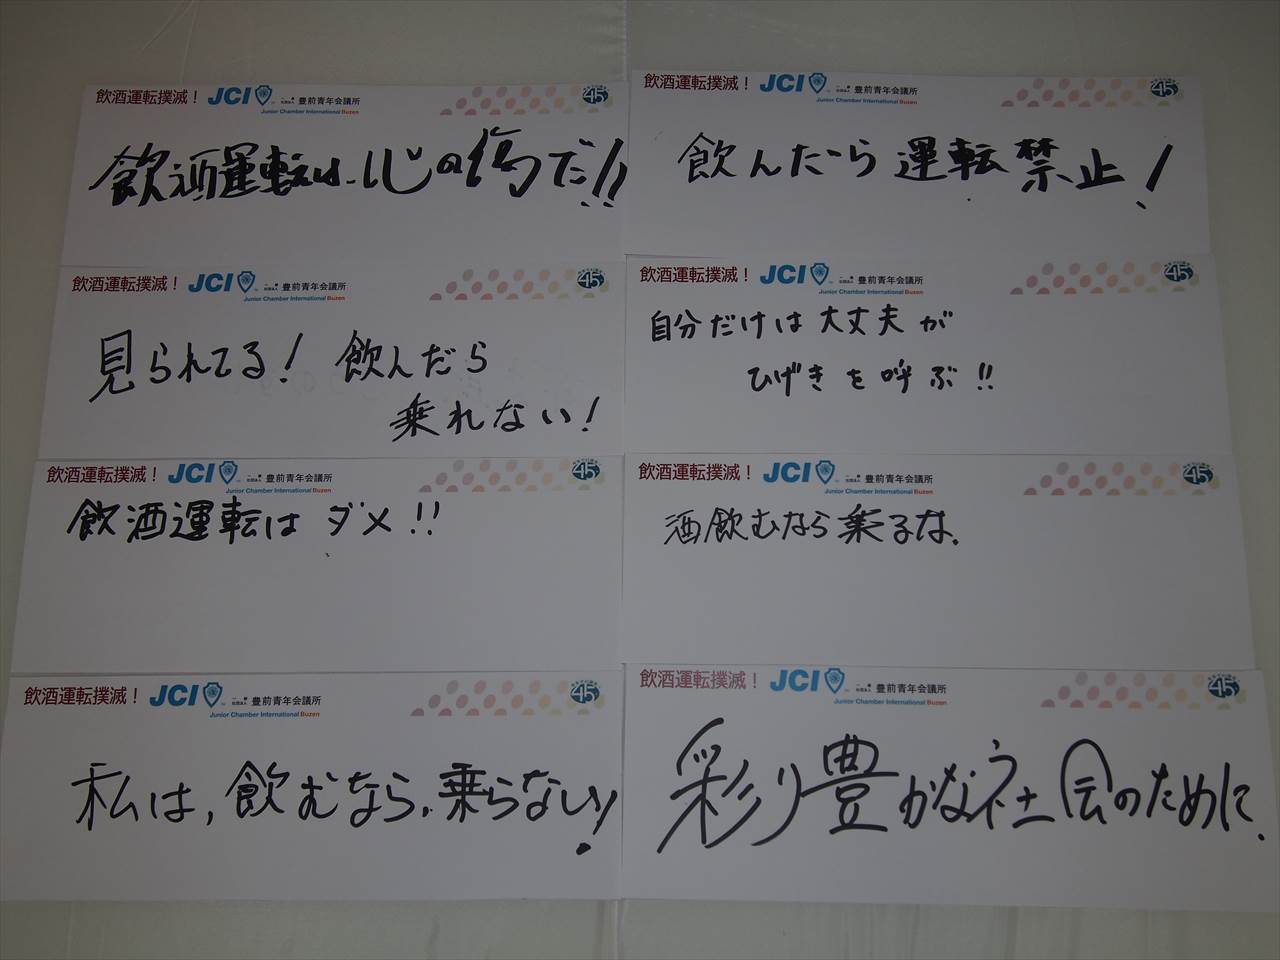 飲酒運転撲滅！ JCI 一般社団法人 豊前青年会議所 45
Junior Chamber International Buzen
飲酒運転は心の傷だ!!
飲酒運転撲滅！ JCI 一般社団法人 豊前青年会議所 45
Junior Chamber International Buzen
飲んだら運転禁止！
飲酒運転撲滅！ JCI 一般社団法人 豊前青年会議所 45
Junior Chamber International Buzen
見られてる！ 飲んだら
乗れない！
飲酒運転撲滅！ JCI 一般社団法人 豊前青年会議所 45
Junior Chamber International Buzen
自分だけは大丈夫が
ひげきを呼ぶ!!
飲酒運転撲滅！ JCI 一般社団法人 豊前青年会議所 45
Junior Chamber International Buzen
飲酒運転はダメ!!
飲酒運転撲滅！ JCI 一般社団法人 豊前青年会議所 45
Junior Chamber International Buzen
酒飲むなら乗るな.
飲酒運転撲滅！ JCI 一般社団法人 豊前青年会議所 45
Junior Chamber International Buzen
私は,飲むなら,乗らない!
飲酒運転撲滅！ JCI 一般社団法人 豊前青年会議所 45
Junior Chamber International Buzen
彩り豊かな社会のために.